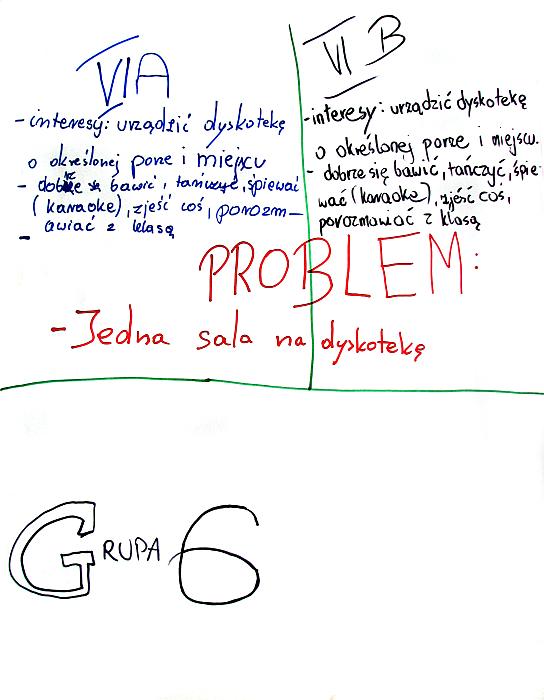 VIA
- interesy: urządzić dyskotekę
o określonej porze i miejscu
- dobrze się bawić, tańczyć, śpiewać
(karaoke), zjeść coś, porozm-
awiać z klasą
-
VI B
- interesy: urządzić dyskotekę
o określonej porze i miejscu.
- dobrze się bawić, tańczyć, śpie-
wać (karaoke), zjeść coś,
porozmawiać z klasą
PROBLEM:
- Jedna sala na dyskotekę
GRUPA 6